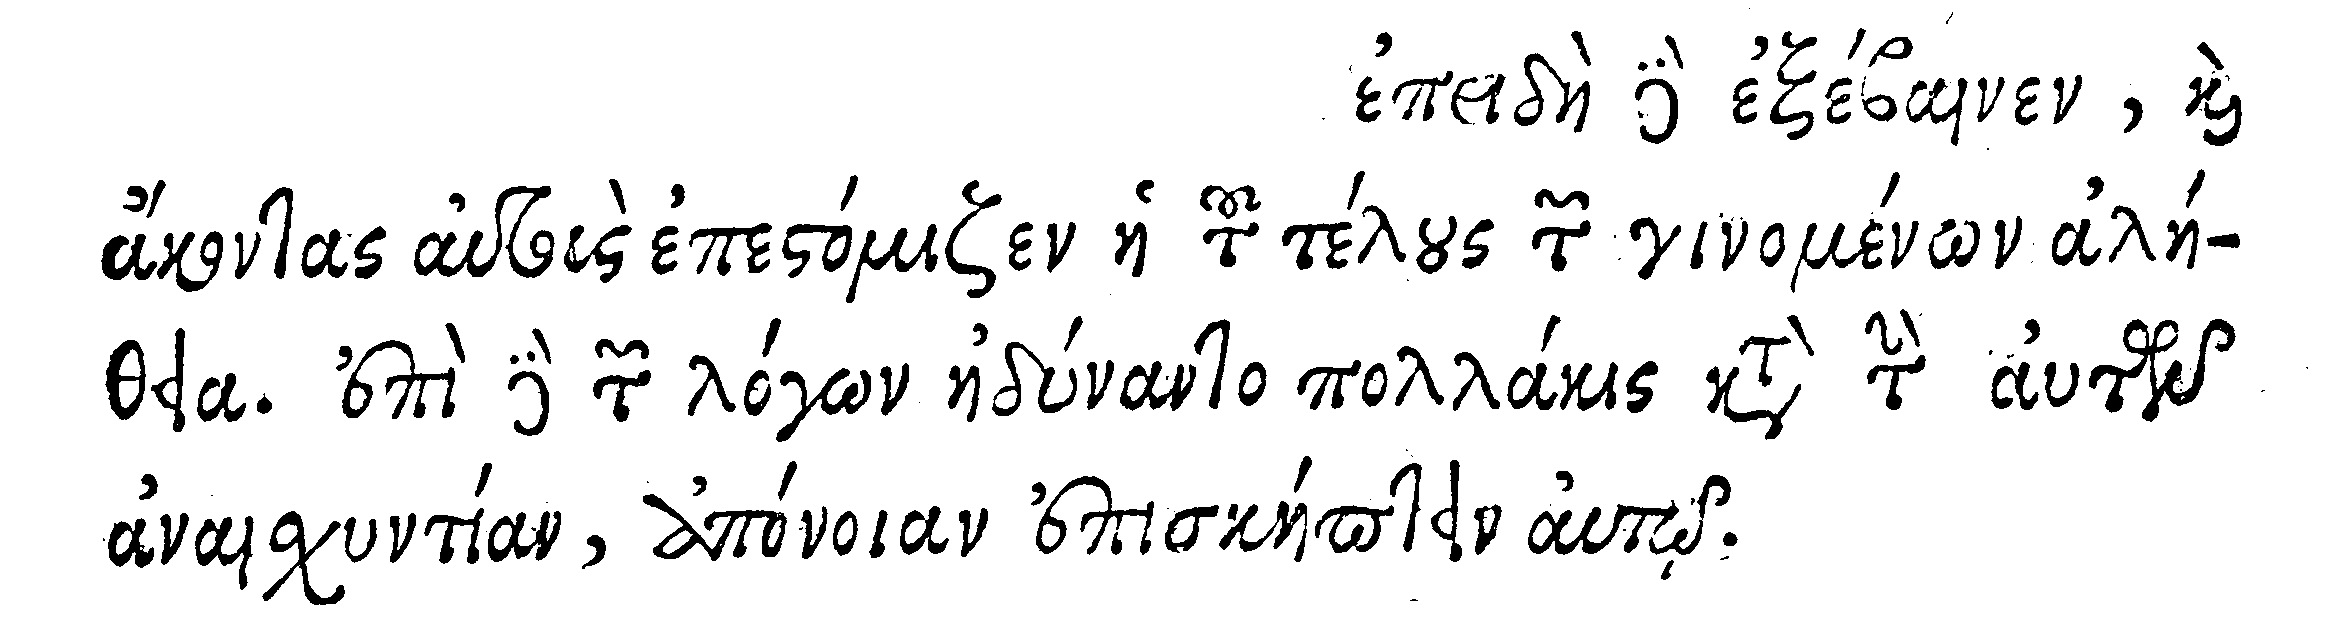 ἐπειδὴ δὲ ἐξέβαινεν, καὶ
ἄκοντας αὐθις ἐπεστόμιζεν ἡ τοῦ τέλους τῶν γινομένων ἀλή-
θεια. ἐπὶ δὲ τῶν λόγων ἠδύναντο πολλάκις κατὰ τὴν αὐτῶν
ἀναισχυντίαν, ἀπόνοιαν ἐπισκήπτειν αὐτῷ.